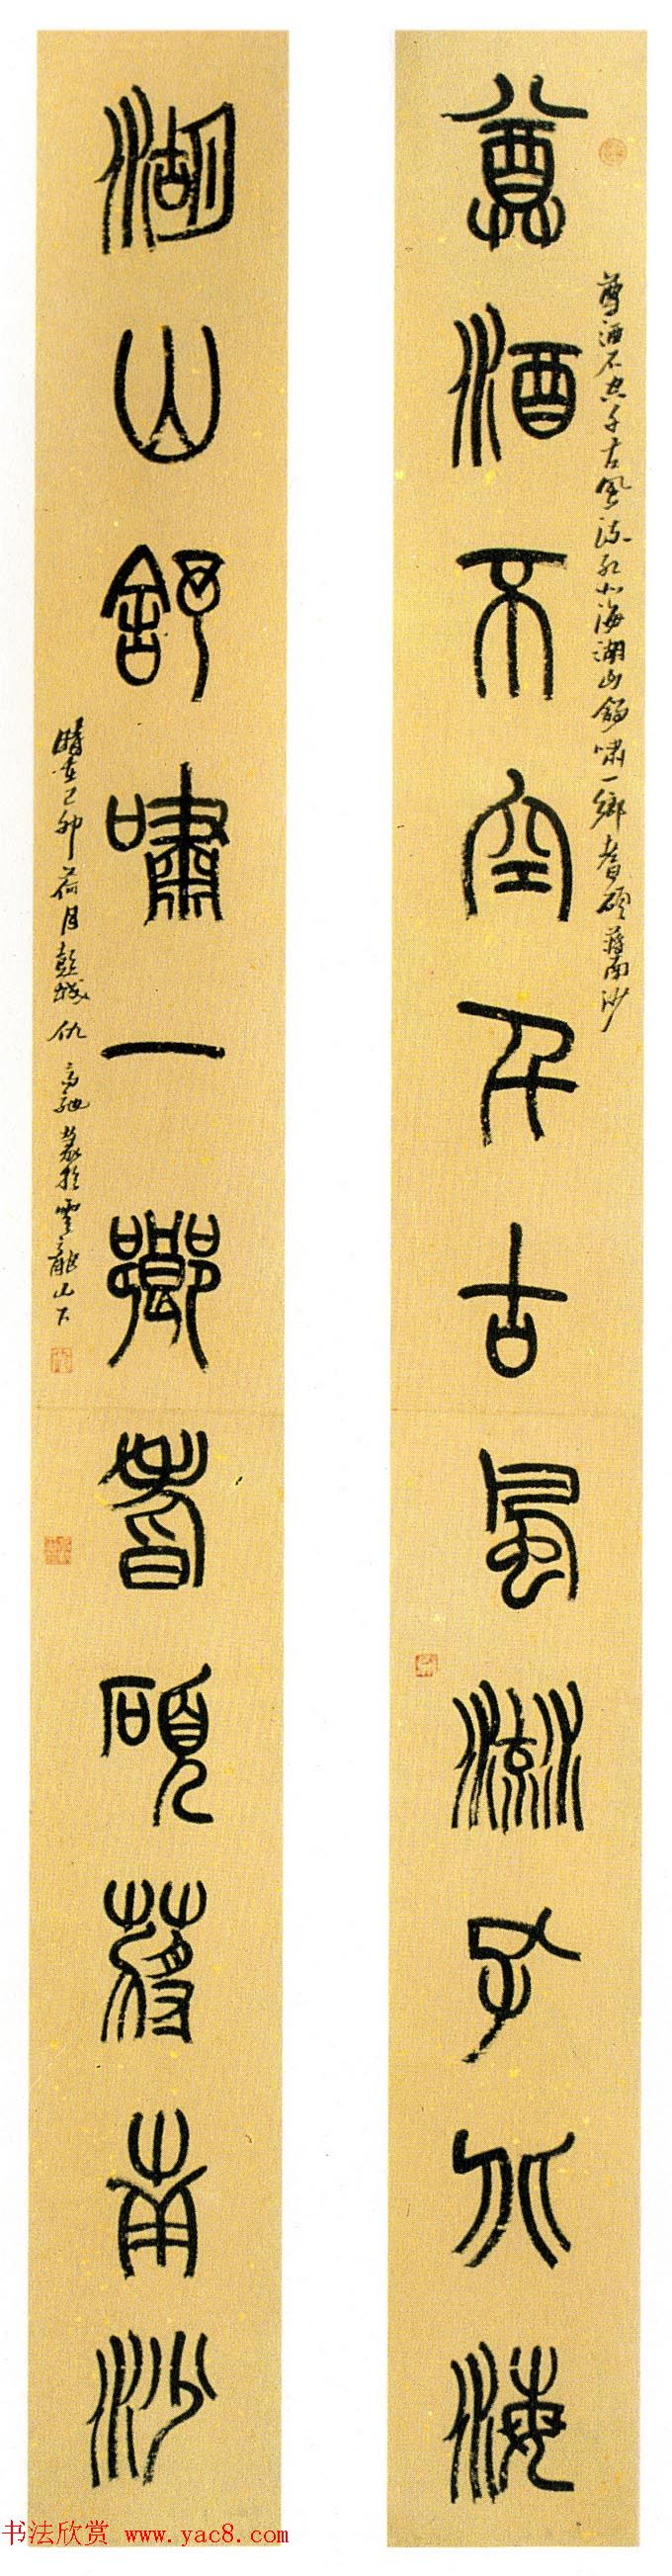 尊酒不空千古風流孔北海
尊酒不空千古風流孔北海湖山舒嘯一鄉耆碩蔣南沙
湖山舒嘯一鄉耆碩蔣南沙
時在己卯荷月彭城仇高馳篆於雲龍山下
书法欣赏 www.yac8.com